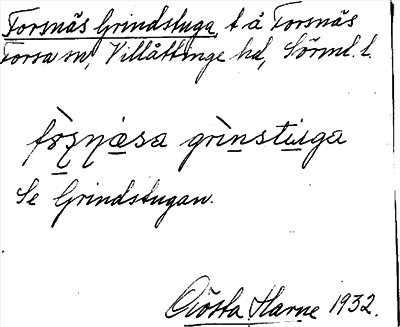 Torsnäs Grindstuga, t å Torsnäs
Torsa sn, Villåttinge hd, Sörml. l.
grìnstuga
Se Grindstugan.
Gösta Harne 1932.